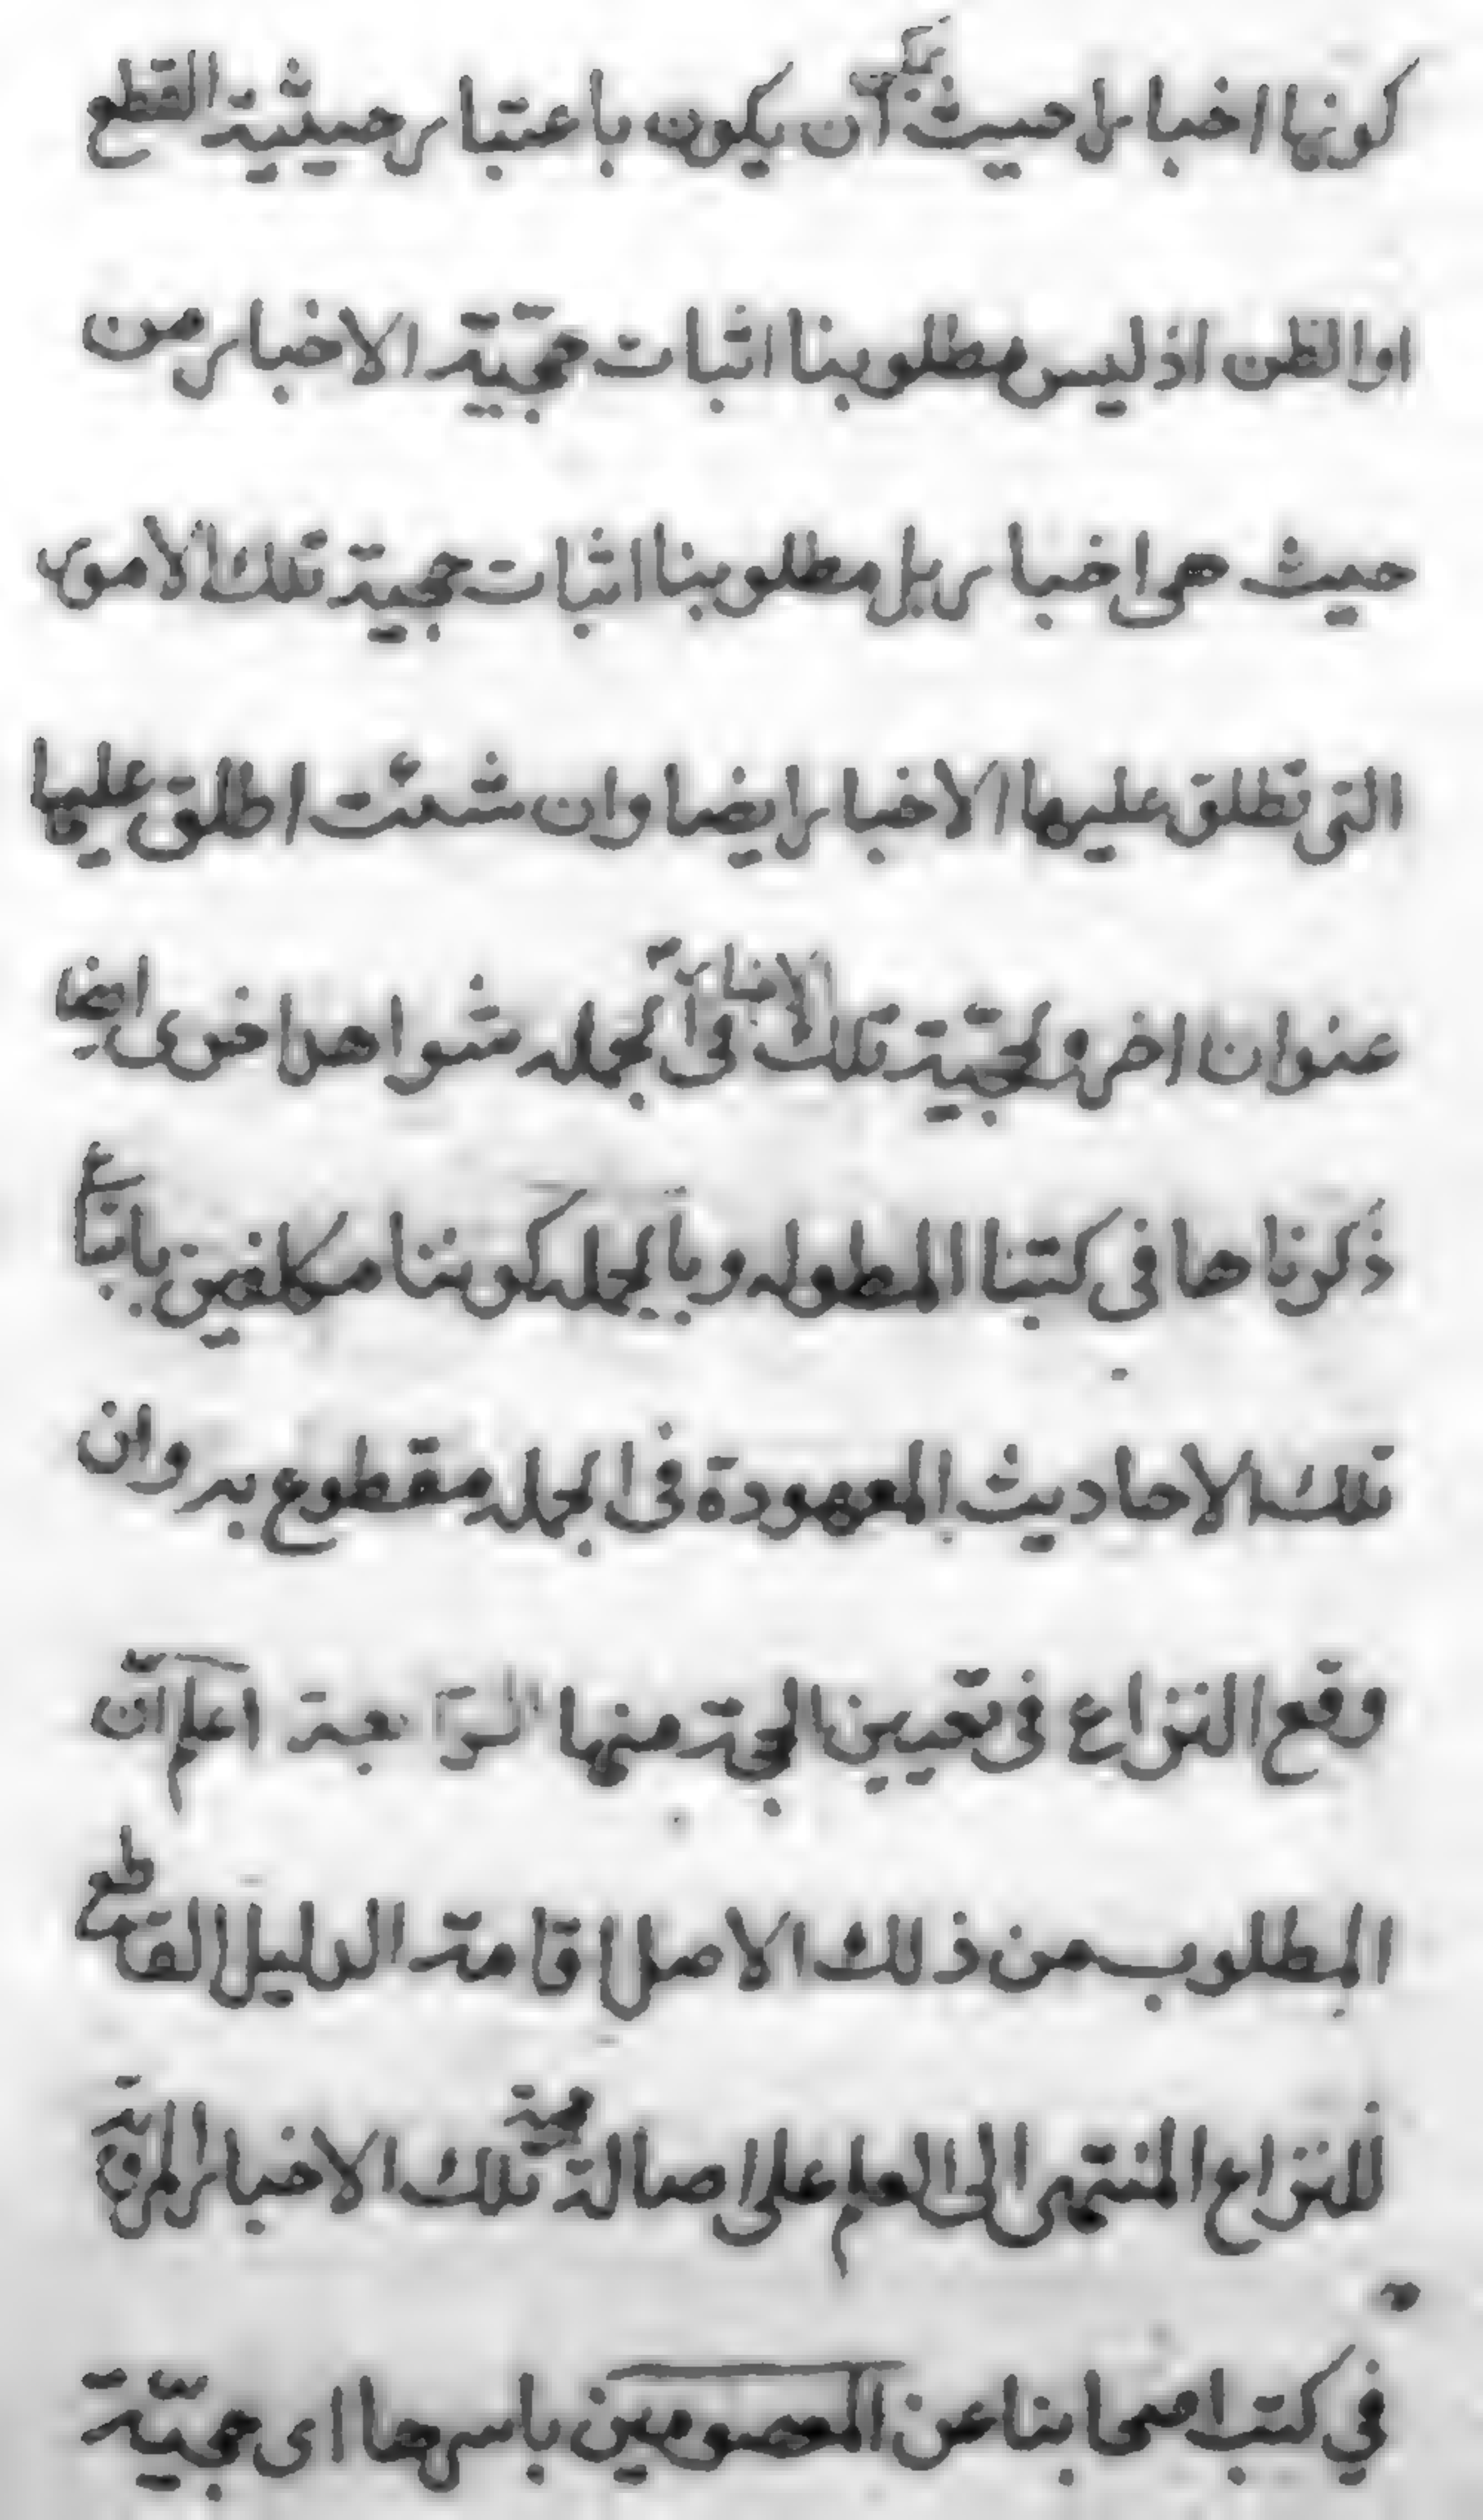 كونها اخبار حيث يمكن أن يكون باعتبار حيثية القطع
او الظن اذ ليس مطلوبنا اثبات حجّيّة الاخبار من
حيث هى اخبار بل مطلوبنا اثبات حجية تلك الأمور
التى تطلق عليها الاخبار ايضا وان شئت اطلق عليها
عنوان اخر ولحجّيّة تلك الاخبار فى الجمله شواهد اخرى ايضا
ذكرناها فى كتبنا المطوله وبالجمله كوننا مكلفين باتباع
تلك الاحاديث المعهودة فى الجمله مقطوع به وان
وقع النزاع فى تعيين الحجة منها الرّابعة اعلم انّ
المطلوب من ذلك الاصل اقامة الدليل القاطع
للنزاع المنتهى الى العلم على اصالة حجية تلك الاخبار المروية
في كتب اصحابنا عن المعصومين باسرها اى حجّيّة